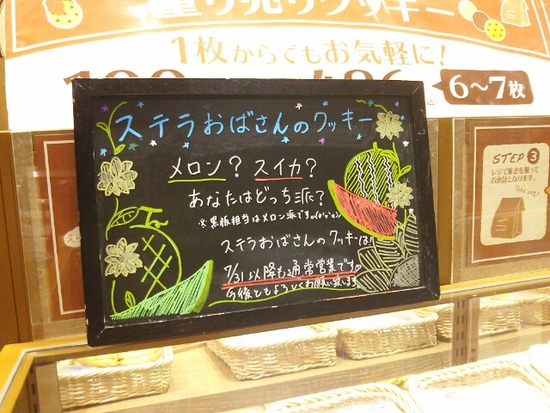 量り売りクッキー
1枚からでもお気軽に!
6〜7枚
ステラおばさんのクッキー
メロン? スイカ?
あなたはどっち派?
※黒板担当はメロン派です。
ステラおばさんのクッキーは
7/31以降も通常営業です。
今後ともよろしくお願い致します
STEP 3
レジで重さを量って
お会計となります。